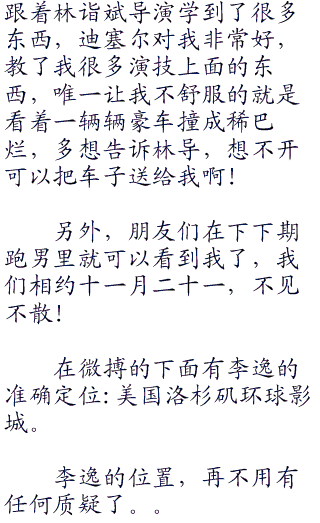 跟着林诣斌导演学到了很多
东西，迪塞尔对我非常好，
教了我很多演技上面的东
西，唯一让我不舒服的就是
看着一辆辆豪车撞成稀巴
烂，多想告诉林导，想不开
可以把车子送给我啊！
另外，朋友们在下下期
跑男里就可以看到我了，我
们相约十一月二十一，不见
不散！
在微搏的下面有李逸的
准确定位：美国洛杉矶环球影
城。
李逸的位置，再不用有
任何质疑了。。